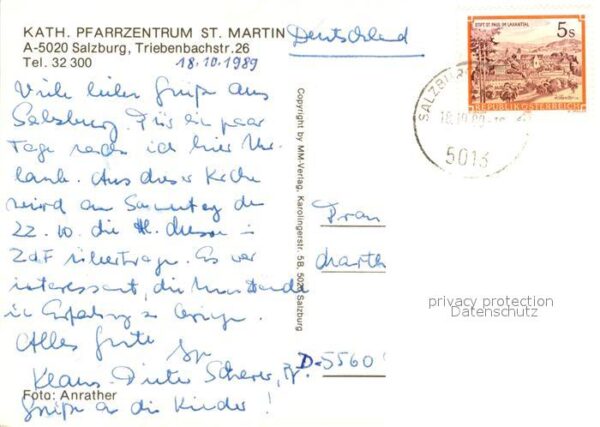 KATH. PFARRZENTRUM ST. MARTIN
A-5020 Salzburg, Triebenbachstr.26
Tel. 32 300
18.10.1989
Deutschland
STIFT ST. PAUL IM LAVANTTAL
5s
REPUBLIK ÖSTERREICH
SALZBURG
18.10.89
5013
Viele liebe Grüße aus
Salzburg. Für ein paar
Tage mache ich hier Ur-
laub. Aus dieser Kirche
wird am Sonntag den
22.10. die Hl. Messe im
ZdF übertragen. Es war
interessant, die
in Erfahrung zu bringen.
Alles Gute
Klaus-Dieter Scherer,
Grüße an die Kinder!
Copyright by MM-Verlag, Karolingerstr. 5B, 5020 Salzburg
Frau
D-5560
privacy protection
Datenschutz
Foto: Anrather